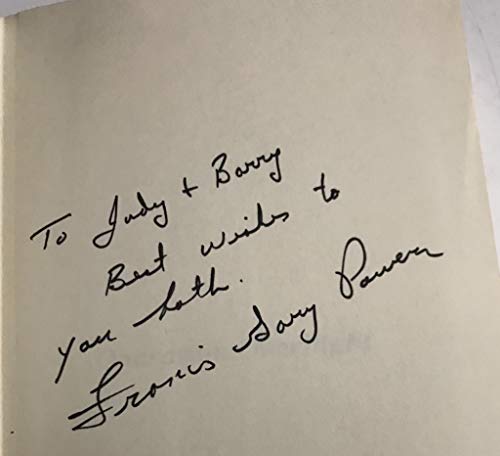 To Judy + Barry
Best wishes to
you both.
Francis Gary Powers